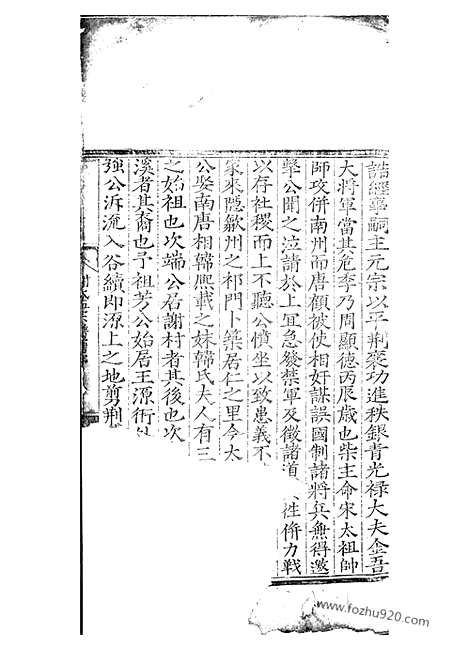 誥經臺嗣主元宗以平荆襄功進秩銀青光禄大夫金吾
大將軍當其危季乃周顯德丙辰歳也柴主命宋太祖帥
師攻併南州而唐顧被使相奸謀誤國制諸將兵無得邀
擊公聞之泣請於上宜急發禁軍及徵諸道 姓倂力戰
以存社稷而上不聽公憤坐以致患義不
家來隠歙州之祁門卜築居仁之里今太
公娶南唐相韓熈載之妹韓氏夫人有三
之始祖也次端公居謝村者其後也次
溪者其裔也予祖芳公始居王源術
強公泝流入谷績即源上之地剪荆
www.fozhu920.com